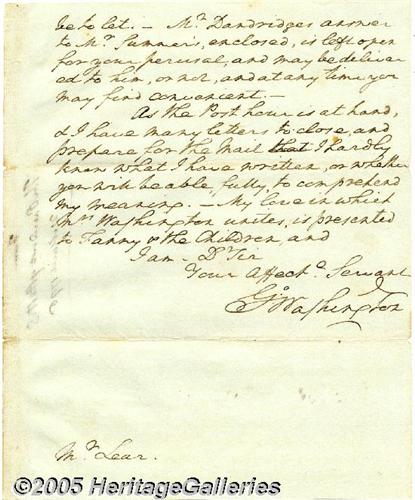 be to let. — Mr. Dandridges answer
to Mr. Summers, enclosed, is left open
for your perusal, and may be deliver
ed to him, or not, and at any time you
may find convenient. —
As the Post hour is at hand,
& I have many letters to close, and
prepare for the Mail that I hardly
know what I have written, or whether
you will be able, fully, to comprehend
my meaning. — My love in which
Mrs. Washington unites, is presented
to Fanny & the Children, and
I am — Dr Sir
Your Affecte. Servant
Go: Washington
Mr. Lear.
©2005 HeritageGalleries